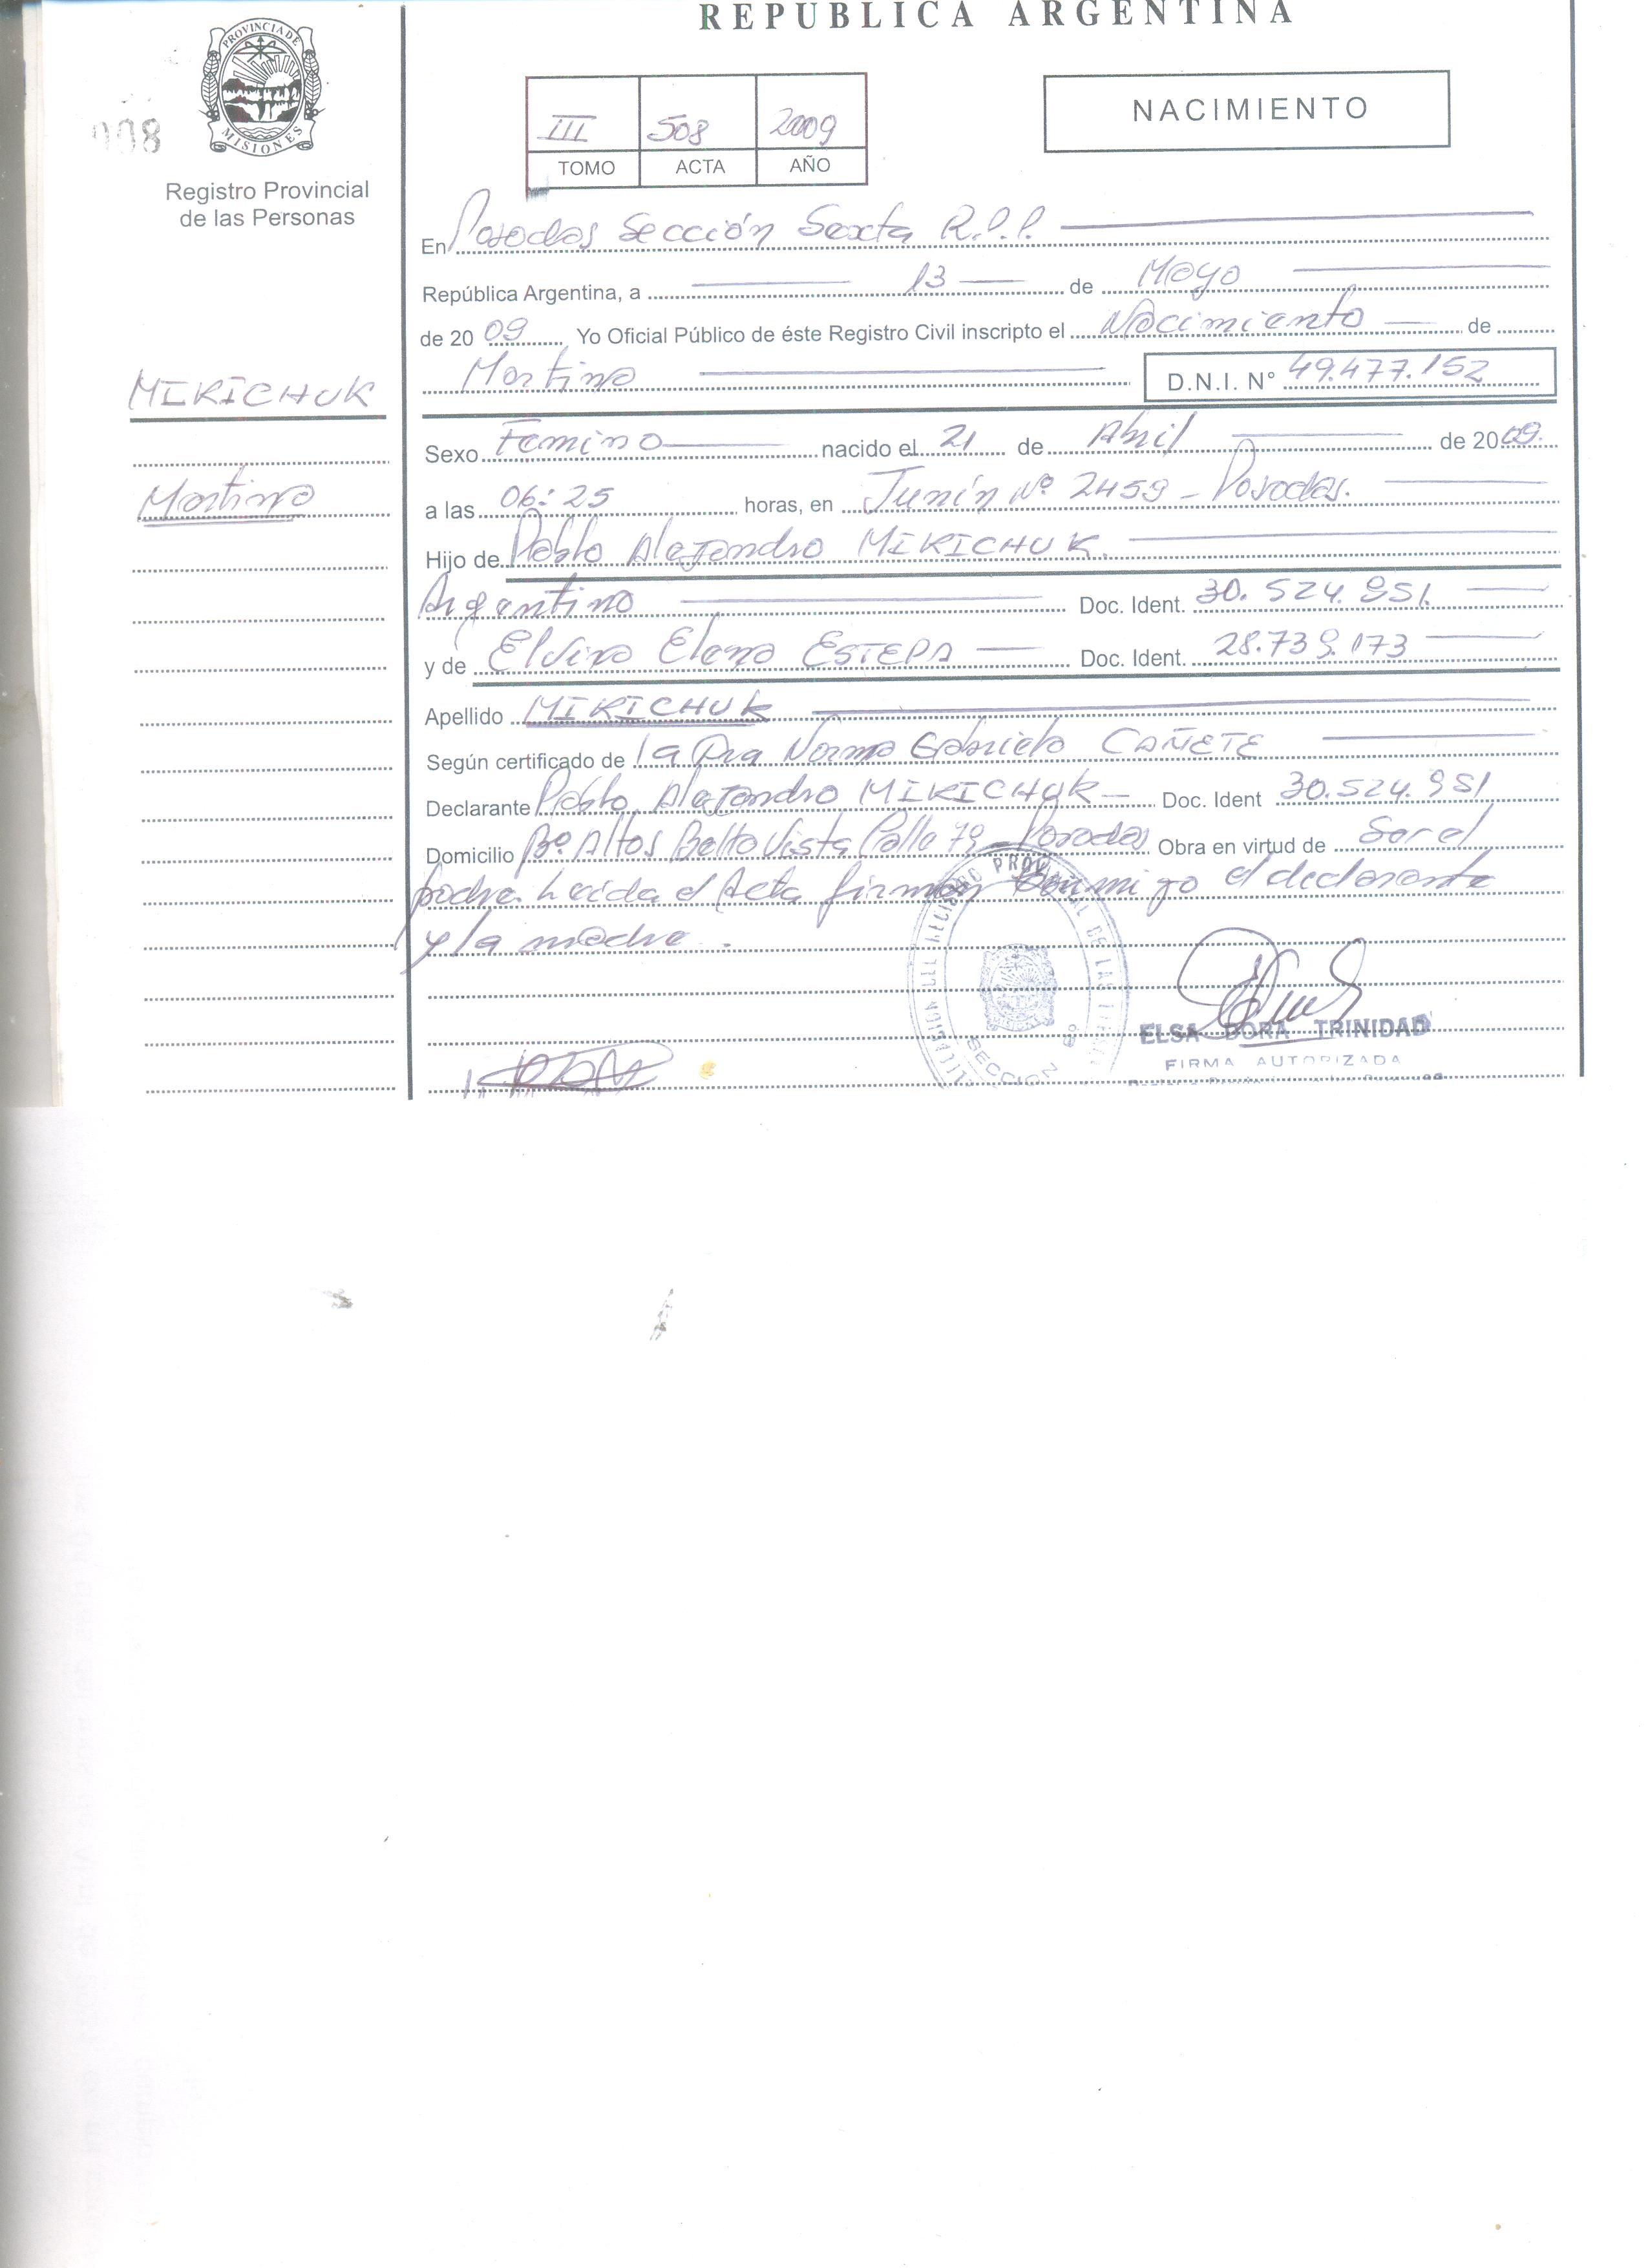 REPUBLICA ARGENTINA
PROVINCIA DE
MISIONES
008
Registro Provincial
de las Personas
III 508 2009
TOMO ACTA AÑO
NACIMIENTO
En Posadas Sección Sexta R.P.P.
República Argentina, a 13 de Mayo
de 2009 Yo Oficial Público de éste Registro Civil inscripto el Nacimiento de
Martina D.N.I. Nº 49.477.152
MIKICHUK
Martina
Sexo Femino nacido el 21 de Abril de 2009.
a las 06:25 horas, en Junín Nº 2459 - Posadas.
Hijo de Pablo Alejandro MIKICHUK.
Argentino Doc. Ident. 30.524.951.
y de Elvira Elena ESTEPA Doc. Ident. 28.739.173
Apellido MIKICHUK
Según certificado de la Dra Norma Gabriela CAÑETE
Declarante Pablo Alejandro MIKICHUK Doc. Ident 30.524.951
Domicilio Bº Altos Bella Vista Calle 79 - Posadas Obra en virtud de Ser el
padre. Leída el Acta firman conmigo el declarante
y la madre.
SECCION 6º
ELSA DORA TRINIDAD
FIRMA AUTORIZADA